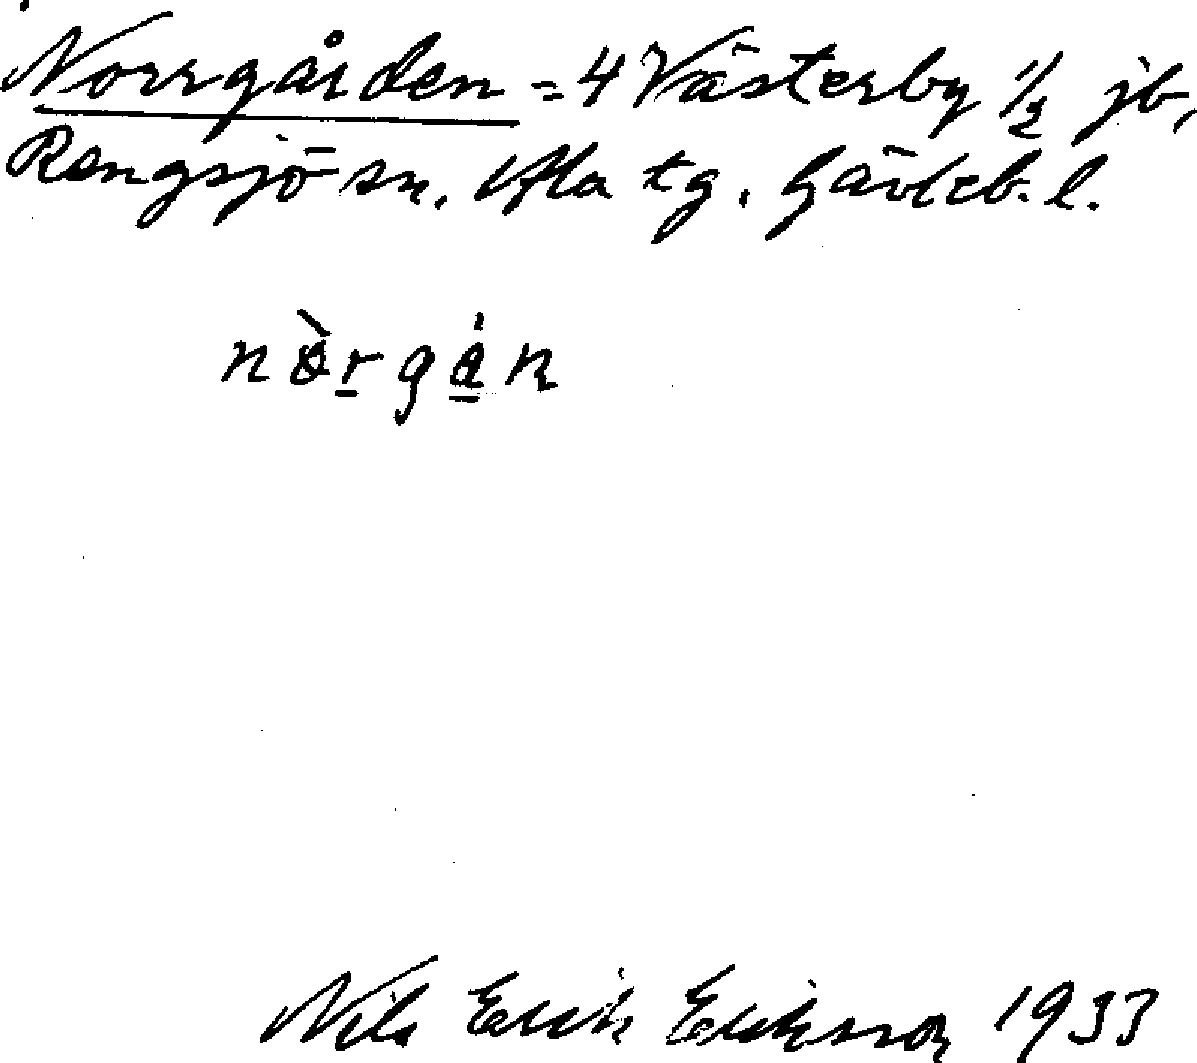 Norrgården = 4 Västerby 1/2 jb,
Rengsjö sn. Ala tg. Gävleb. l.
nòrgán
Nils Erik Eriksson 1933